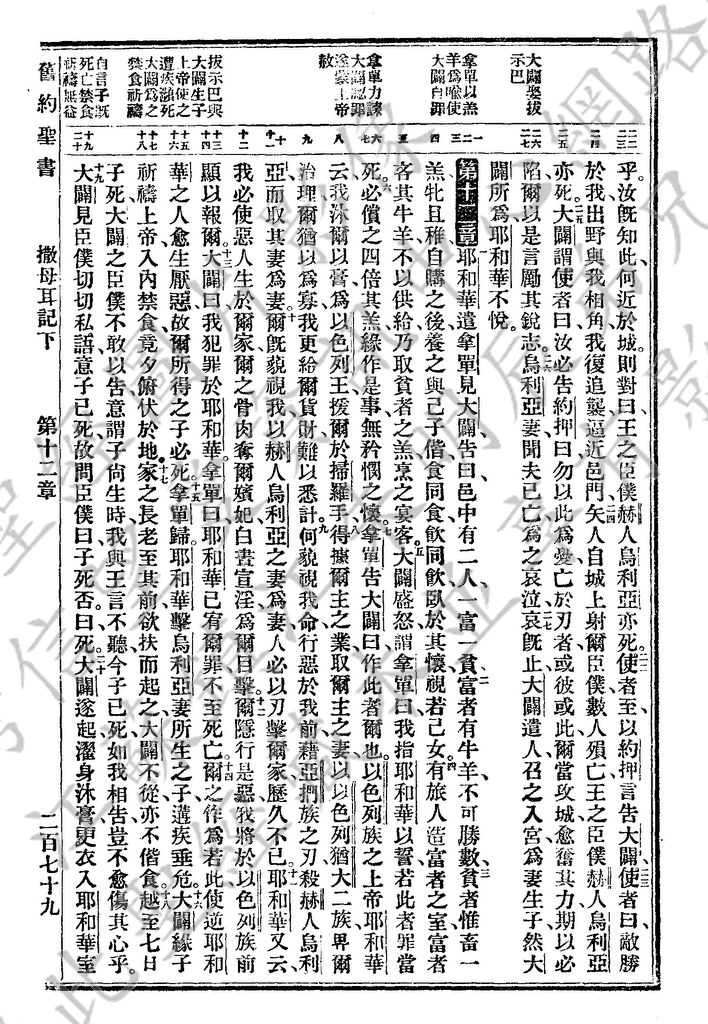 大闢娶拔
示巴
拿單以羔
羊爲喻使
大闢自罪
拿單力諫
大闢認罪
遂蒙上帝
赦
拔示巴與
大闢生子
上帝使之
遭疾瀕死
大闢爲之
禁食祈禱
自言子旣
死亡禁食
祈禱無益
乎、汝旣知此、何近於城、則對曰、王之臣僕赫人烏利亞亦死。二二使者至、以約押言告大闢、二三使者曰、敵勝
於我、出野與我相角、我復追襲、逼近邑門、二四矢人自城上射爾臣僕數人殞亡、王之臣僕赫人烏利亞
亦死。二五大闢謂使者曰、汝必告約押曰、勿以此爲憂、亡於刃者、或彼或此、爾當攻城愈奮其力、期以必
陷、爾以是言勵其銳志。二六烏利亞妻聞夫已亡、爲之哀泣、二七哀旣止、大闢遣人召之入宮爲妻、生子、然大
闢所爲、耶和華不悅。
第十二章 一耶和華遣拿單見大闢、告曰、邑中有二人、一富一貧、二富者有牛羊不可勝數、三貧者惟畜一
羔、牝且稚、自購之後、養之與己子偕、食同食、飲同飲、臥於其懷、視若己女。四有旅人造富者之室、富者
客其牛羊、不以供給、乃取貧者之羔、烹之宴客。五大闢盛怒、謂拿單曰、我指耶和華以誓、若此者罪當
死、六必償之四倍其羔、緣作是事、無矜憫之懷。七拿單告大闢曰、作此者爾也。以色列族之上帝耶和華
云、我沐爾以膏、爲以色列王、援爾於掃羅手、八得據爾主之業、取爾主之妻、以以色列猶大二族畀爾
治理、爾猶以爲寡、我更給爾貨財、難以悉計。九何藐視我命、行惡於我前、藉亞捫族之刃、殺赫人烏利
亞、而取其妻爲妻。十爾旣藐視我、以赫人烏利亞之妻爲妻、人必以刃擊爾家、歷久不已。十一耶和華又云、
我必使惡人生於爾家、爾之骨肉、奪爾嬪妃、白晝宣淫、爲爾目擊、十二爾隱行是惡、我將於以色列族前
顯以報爾。十三大闢曰、我犯罪於耶和華。拿單曰、耶和華已宥爾罪、不至死亡。十四爾之作爲若此、使逆耶和
華之人愈生厭惡、故爾所得之子必死。十五拿單歸。耶和華擊烏利亞妻所生之子、遘疾垂危。十六大闢緣子
祈禱上帝、入內禁食、竟夕俯伏於地。十七家之長老至其前、欲扶而起之、大闢不從、亦不偕食。十八越至七日
子死、大闢之臣僕不敢以告、意謂子尙生時、我與王言不聽、今子已死、如我相告、豈不愈傷其心乎。
十九大闢見臣僕切切私語、意子已死、故問臣僕曰、子死否。曰、死。二十大闢遂起、濯身沐膏更衣、入耶和華室
舊約聖書 撒母耳記下 第十二章 二百七十九